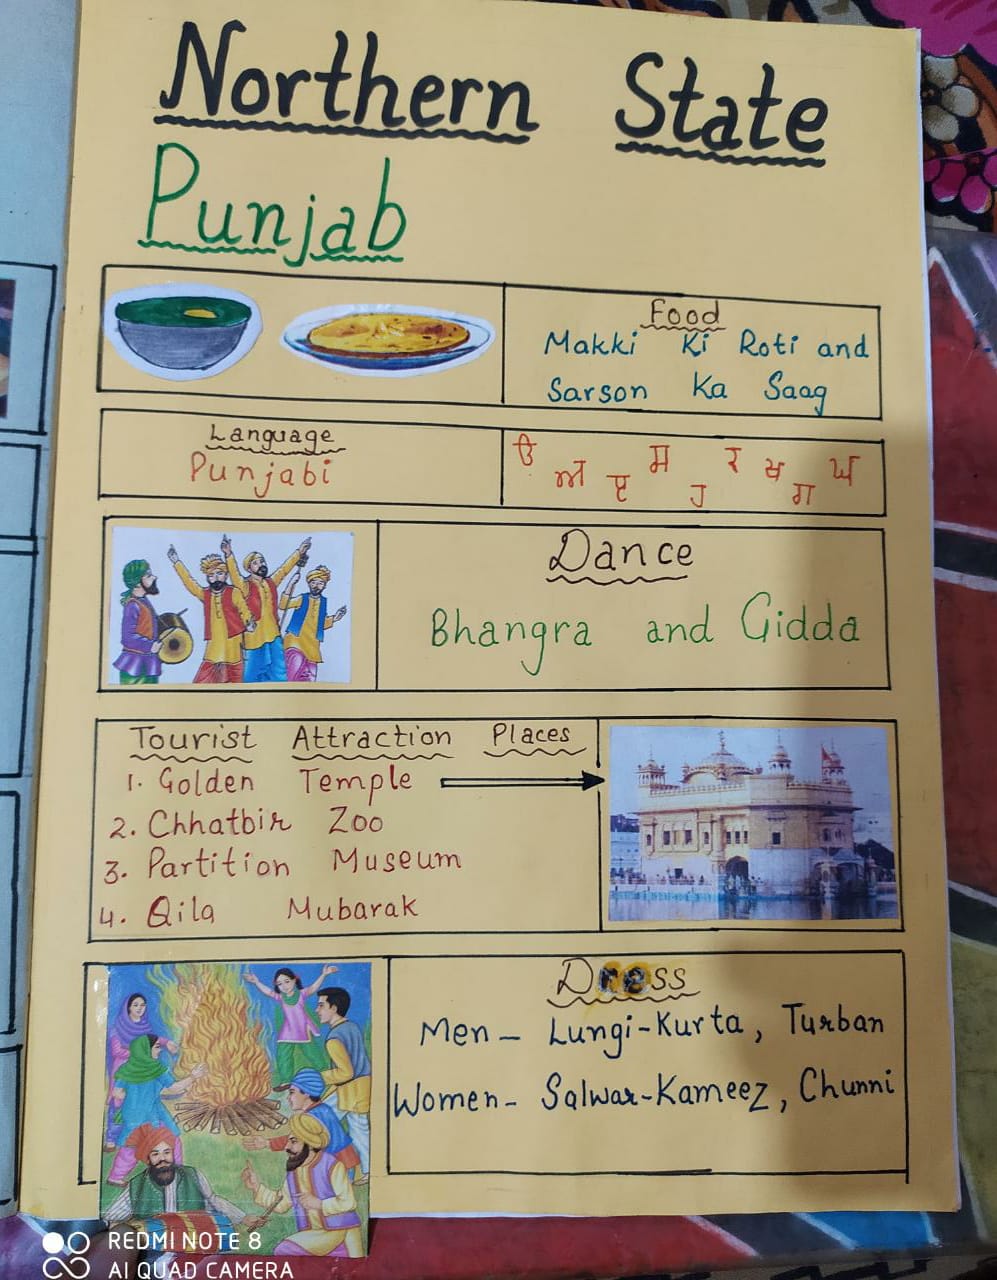 Northern State
Punjab
Food
Makki Ki Roti and
Sarson Ka Saag
Language
Punjabi
ੳ ਅ ੲ ਸ ਹ ਰ ਖ ਗ ਘ
Dance
Bhangra and Gidda
Tourist Attraction Places
1. Golden Temple
2. Chhatbir Zoo
3. Partition Museum
4. Qila Mubarak
Dress
Men - Lungi-Kurta, Turban
Women - Salwar-Kameez, Chunni
REDMI NOTE 8
AI QUAD CAMERA